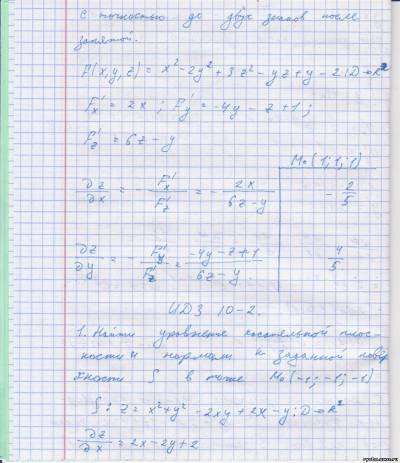 с точностью до двух знаков после
запятой.
F(x,y,z) = x² - 2y² + 3z² - yz + y - 2; D = R²
F'x = 2x ; F'y = -4y - z + 1 ;
F'z = 6z - y
M₀(1;1;1)
∂z/∂x = - F'x/F'z = - 2x/(6z-y) - 2/5
∂z/∂y = - F'y/F'z = (-4y-z+1)/(6z-y) 4/5
ИДЗ 10-2.
1. Найти уравнение касательной плос-
кости и нормали к заданной повер
хности S в точке M₀(-1; -1; -1)
S: z = x² + y² - 2xy + 2x - y; D = R²
∂z/∂x = 2x - 2y + 2